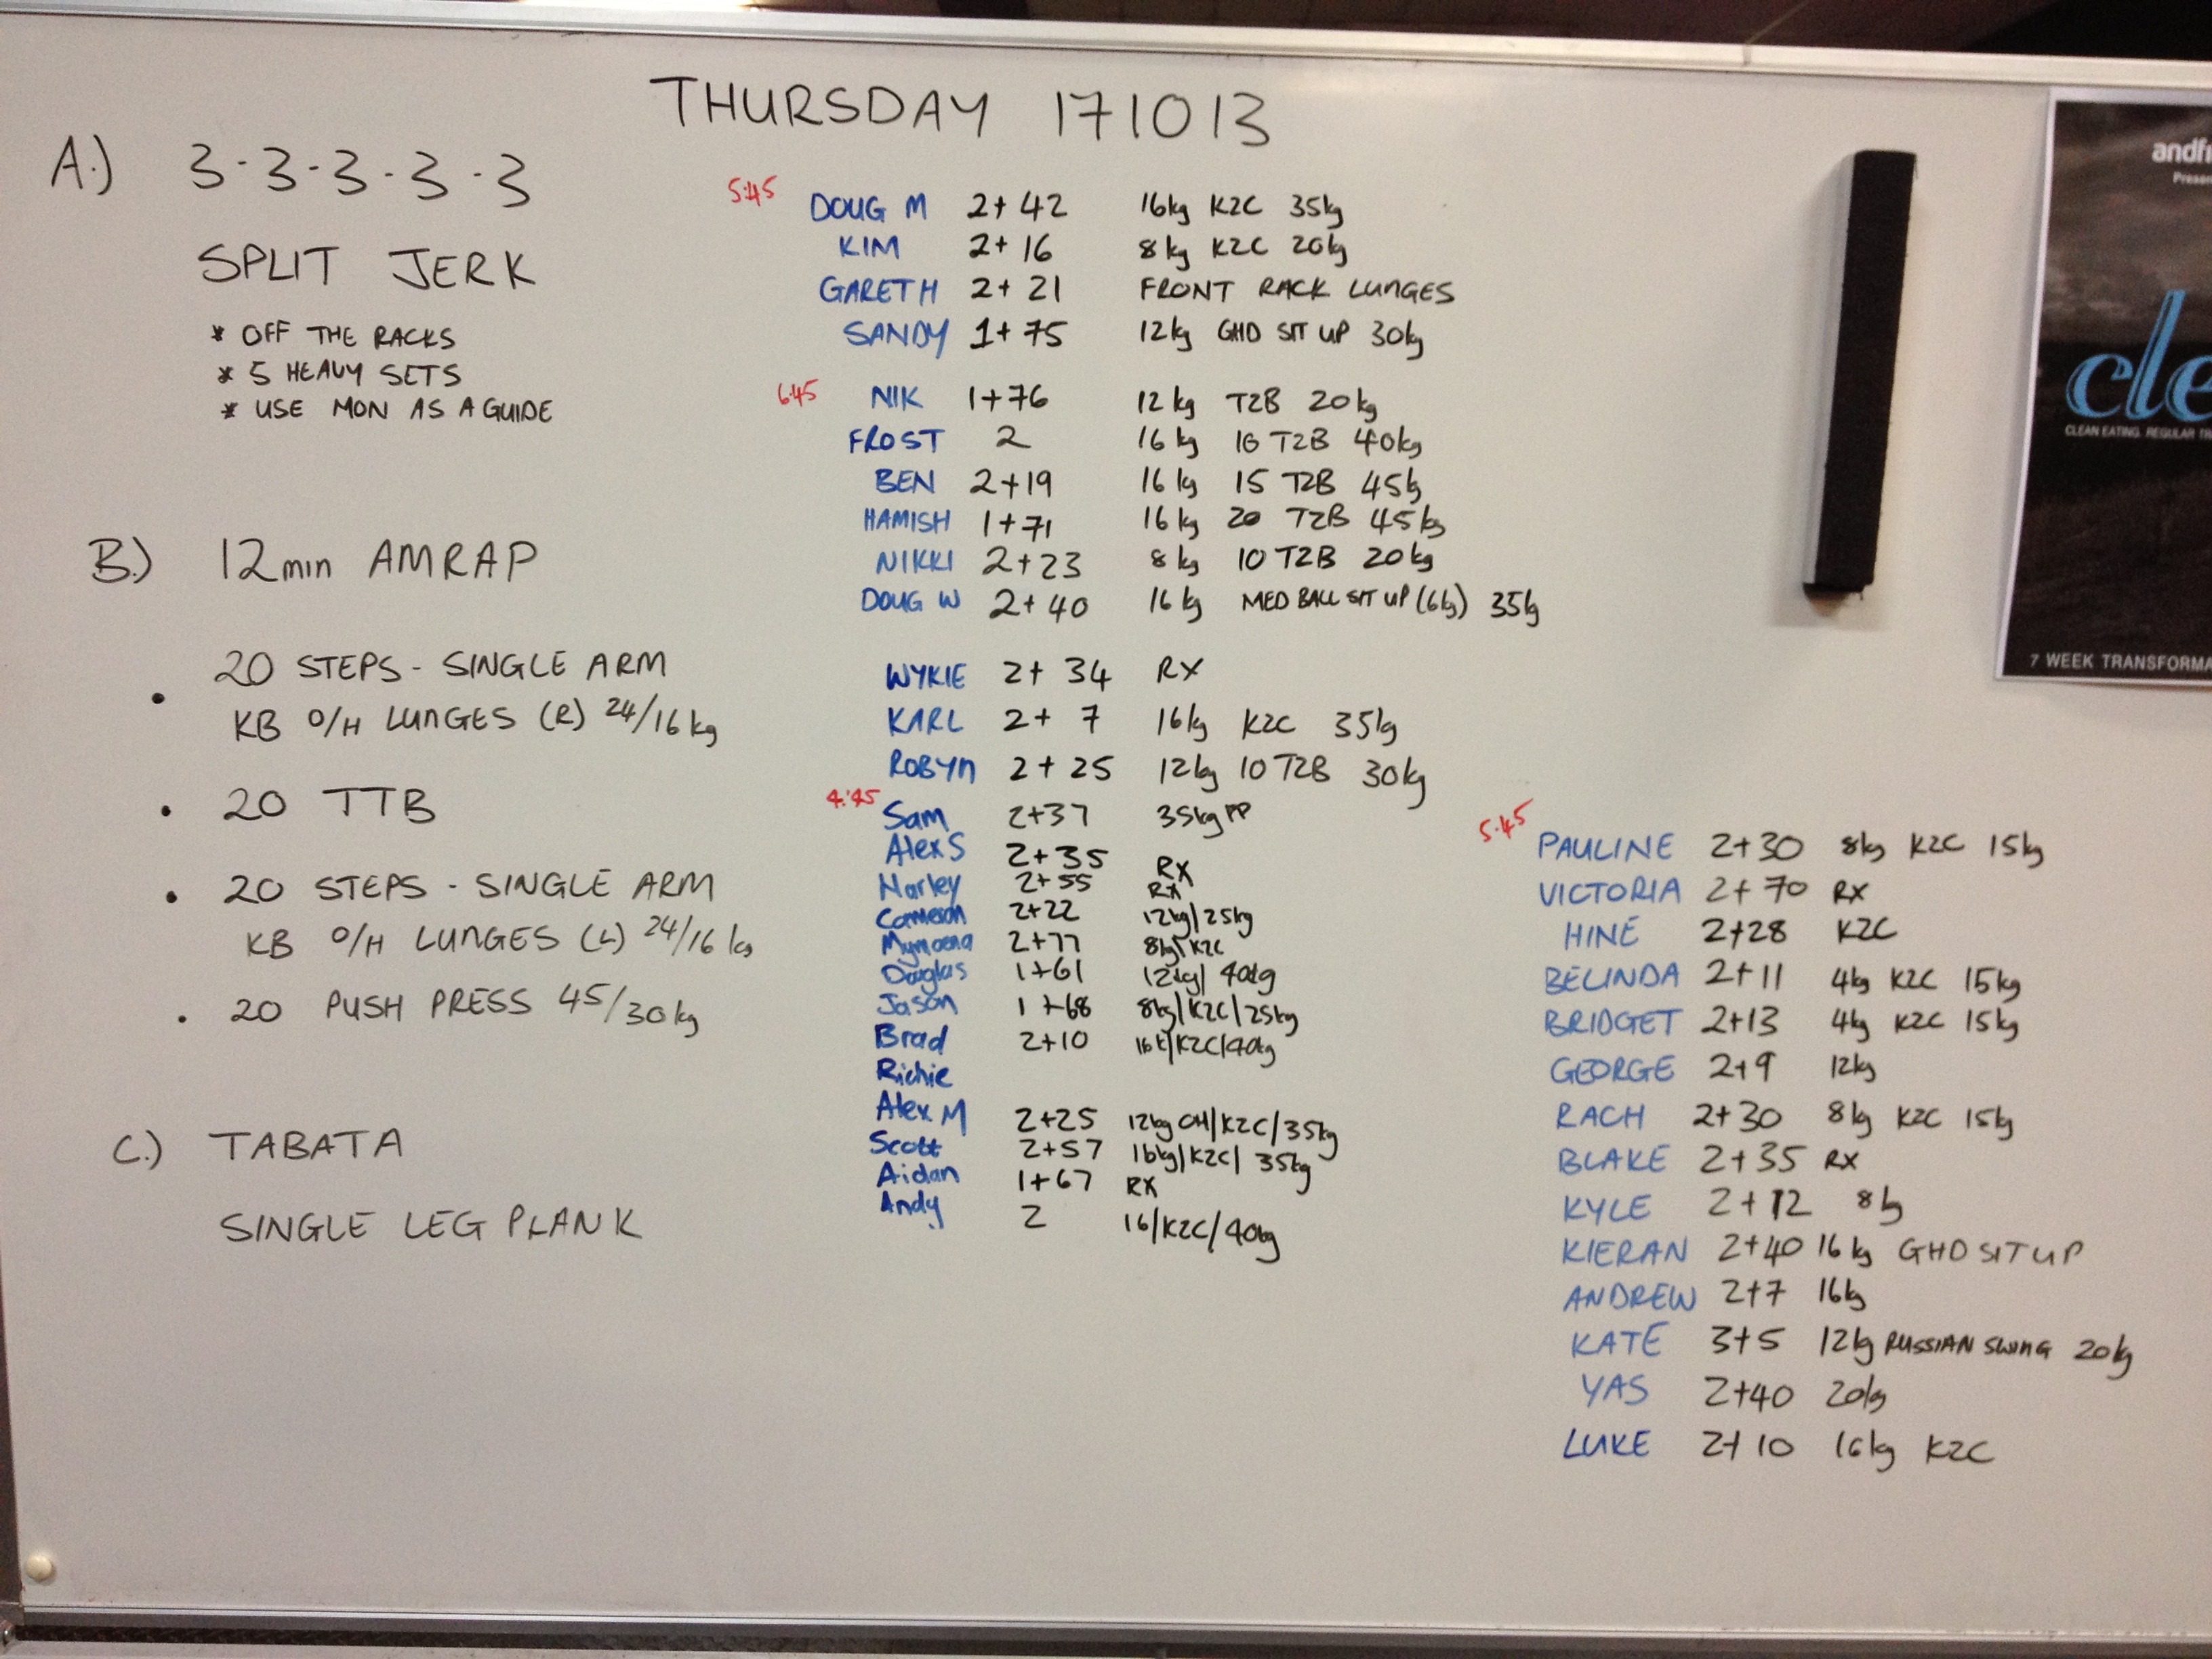 THURSDAY 171013
A.) 3-3-3-3-3
SPLIT JERK
* OFF THE RACKS
* 5 HEAVY SETS
* USE MON AS A GUIDE
B.) 12min AMRAP
• 20 STEPS - SINGLE ARM
KB O/H LUNGES (R) 24/16kg
• 20 TTB
• 20 STEPS - SINGLE ARM
KB O/H LUNGES (L) 24/16kg
• 20 PUSH PRESS 45/30kg
C.) TABATA
SINGLE LEG PLANK
5:45 DOUG M 2+42 16kg K2C 35kg
KIM 2+16 8kg K2C 20kg
GARETH 2+21 FRONT RACK LUNGES
SANDY 1+75 12kg GHD SIT UP 30kg
6:45 NIK 1+76 12kg T2B 20kg
FROST 2 16kg 10 T2B 40kg
BEN 2+19 16kg 15 T2B 45kg
HAMISH 1+71 16kg 20 T2B 45kg
NIKKI 2+23 8kg 10 T2B 20kg
DOUG W 2+40 16kg MED BALL SIT UP (6kg) 35kg
WYKIE 2+34 RX
KARL 2+7 16kg K2C 35kg
ROBYN 2+25 12kg 10 T2B 30kg
4:45 Sam 2+37 35kg PP
Alex S 2+35 RX
Harley 2+55 RX
Cameron 2+22 12kg/25kg
2+77 8kg/K2C
Douglas 1+61 12kg/40kg
Jason 1+68 8kg/K2C/25kg
Brad 2+10 16k/K2C/40kg
Richie
Alex M 2+25 12kg OH/K2C/35kg
Scott 2+57 16kg/K2C/35kg
Aidan 1+67 RX
Andy 2 16/K2C/40kg
5:45 PAULINE 2+30 8kg K2C 15kg
VICTORIA 2+70 RX
HINE 2+28 K2C
BELINDA 2+11 4kg K2C 15kg
BRIDGET 2+13 4kg K2C 15kg
GEORGE 2+9 12kg
RACH 2+30 8kg K2C 15kg
BLAKE 2+35 RX
KYLE 2+12 8kg
KIERAN 2+40 16kg GHD SIT UP
ANDREW 2+7 16kg
KATE 3+5 12kg RUSSIAN SWING 20kg
YAS 2+40 20kg
LUKE 2+10 16kg K2C
andfi
Presen
cle
CLEAN EATING. REGULAR TR
7 WEEK TRANSFORMA